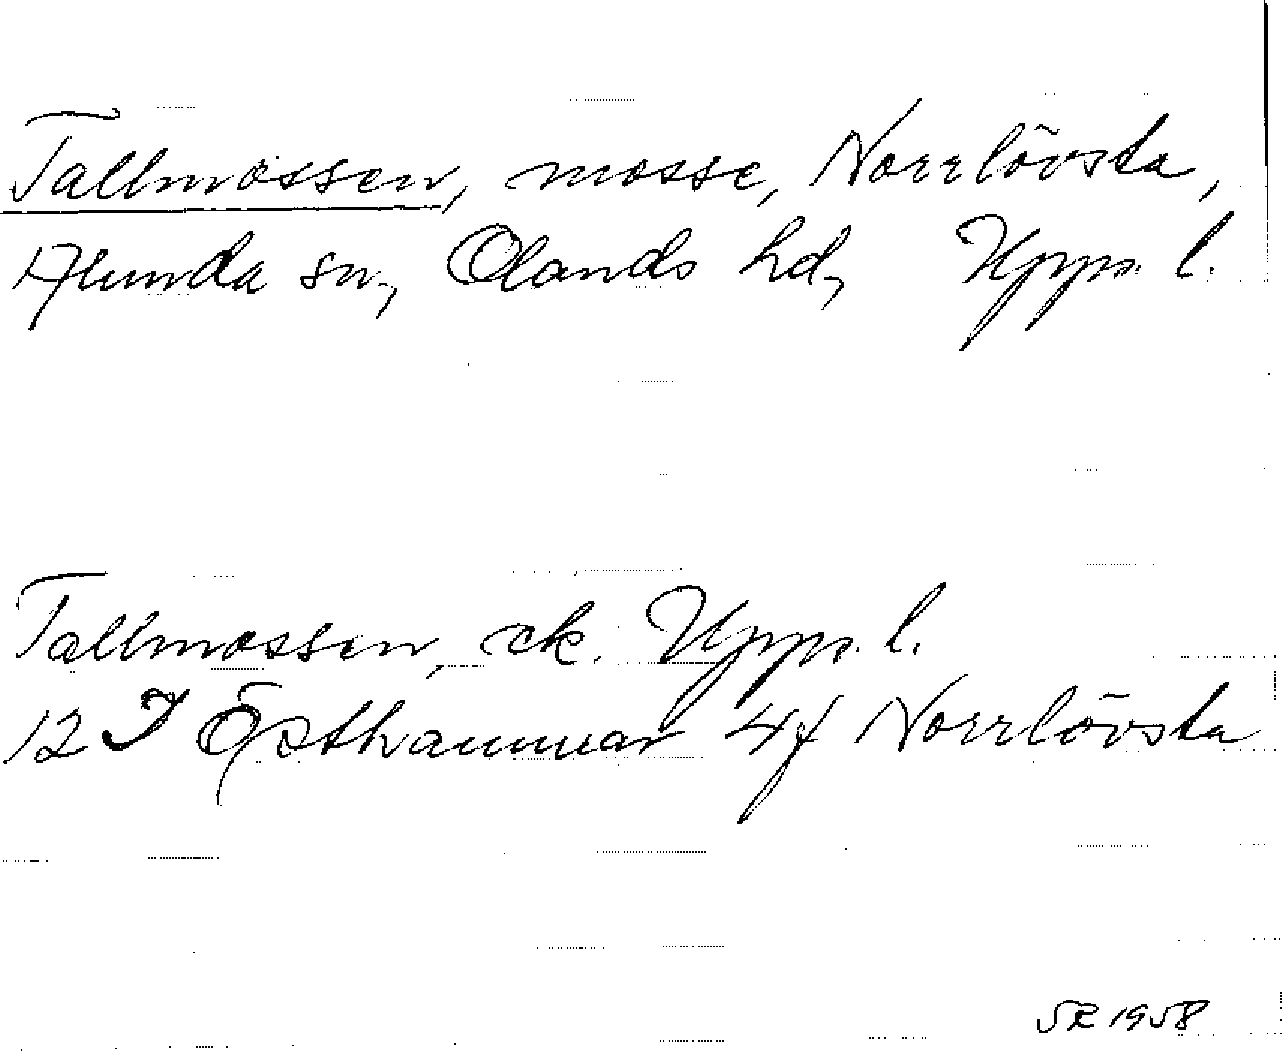 Tallmossen, mosse, Norrlövsta,
Alunda sn., Olands hd, Upps. l.
Tallmossen, ek. Upps. l.
12 I Östhammar 4f Norrlövsta
SR 1958